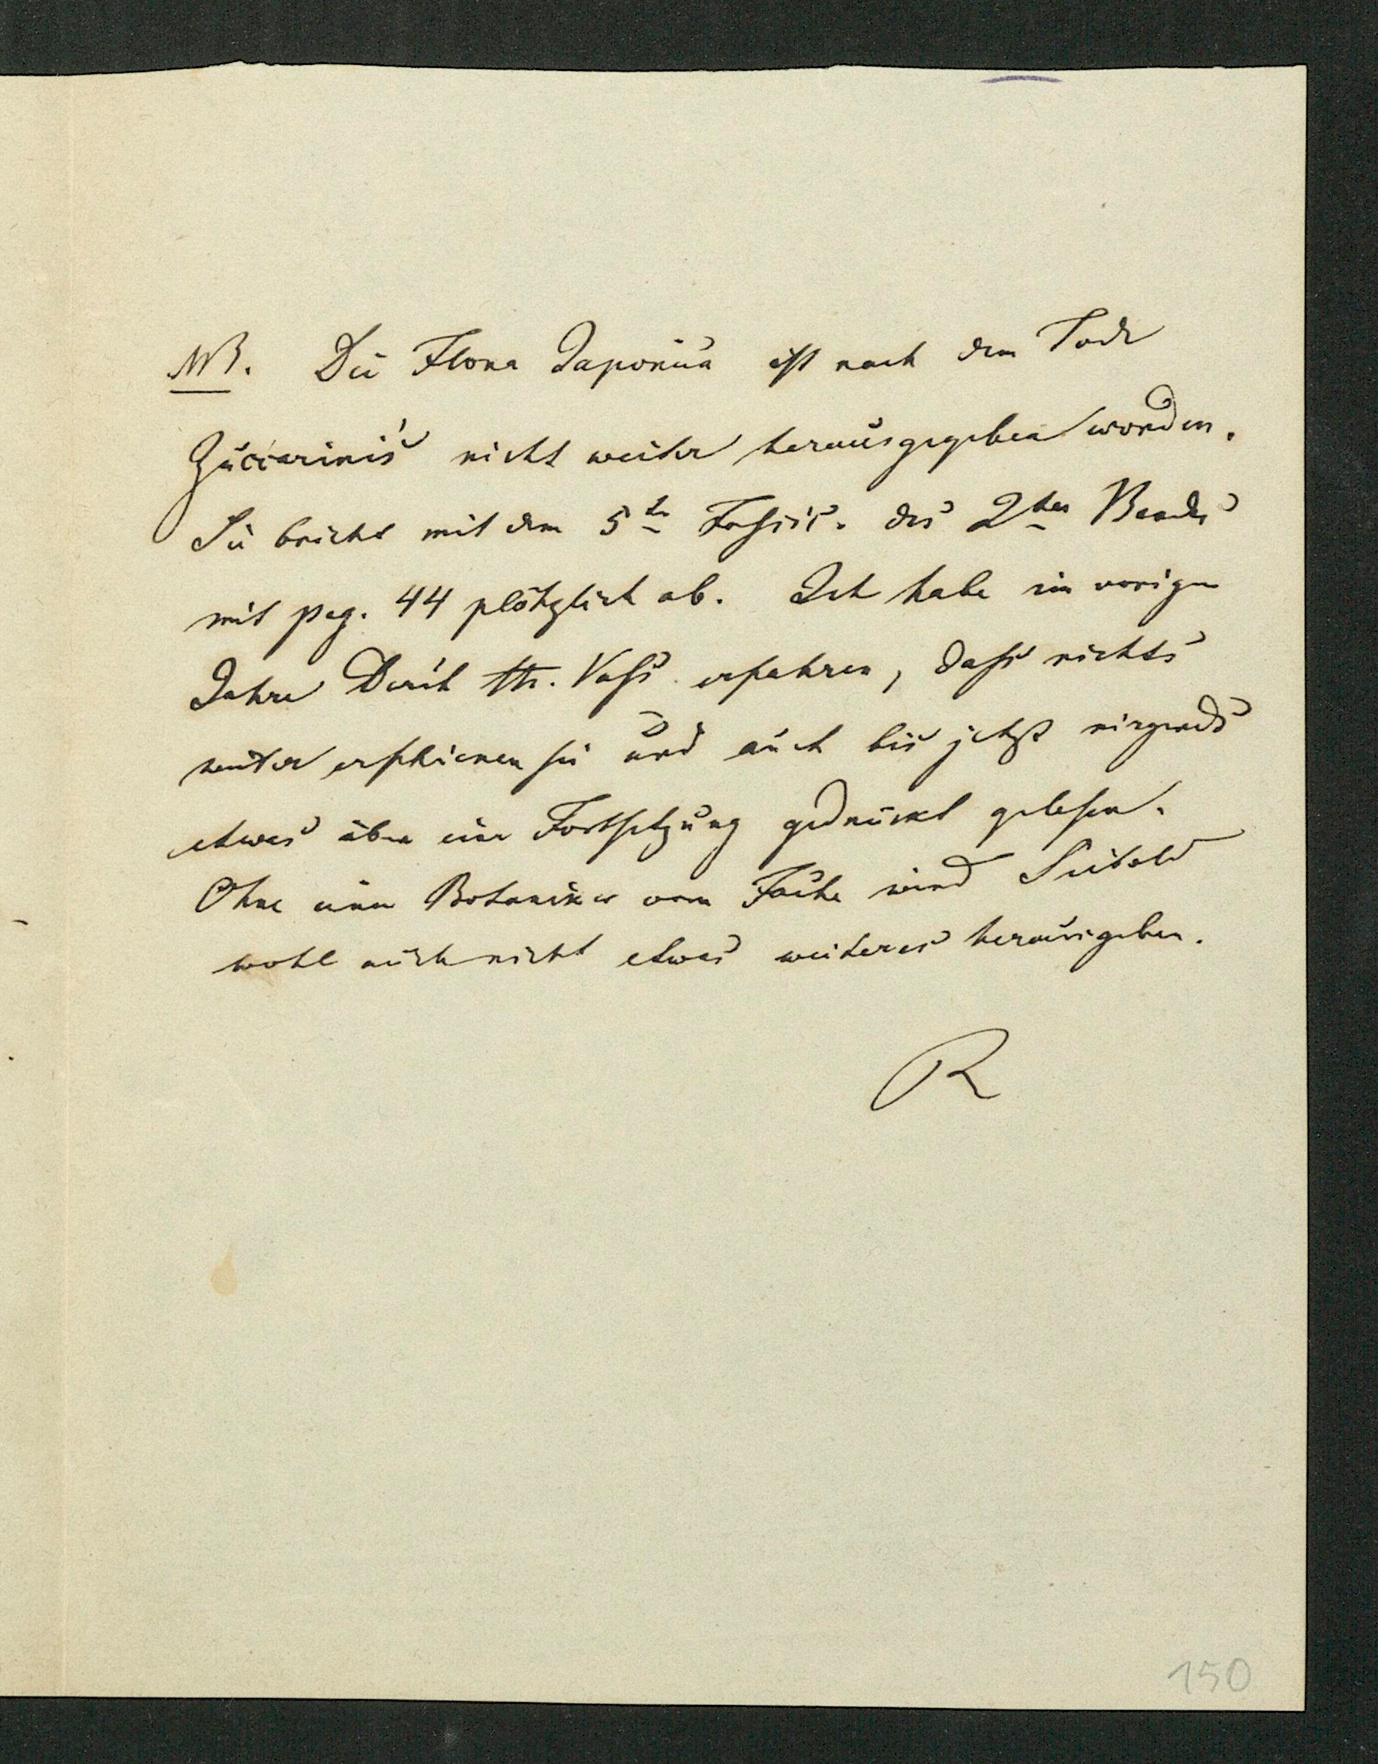 NB. Die Flora Japonica ist nach dem Tode
Zuccarini's nicht weiter herausgegeben worden.
Sie bricht mit dem 5ten Fascic. des 2ten Bandes
mit pag. 44 plötzlich ab. Ich habe im vorigen
Jahre Durch Hr. Voss erfahren, dass nichts
weiter erschienen sei und auch bis jetzt nirgends
etwas über eine Fortsetzung gedruckt gelesen.
Ohne einen Botaniker vom Fache wird Siebold
wohl auch nicht etwas weiteres herausgeben.
R
150